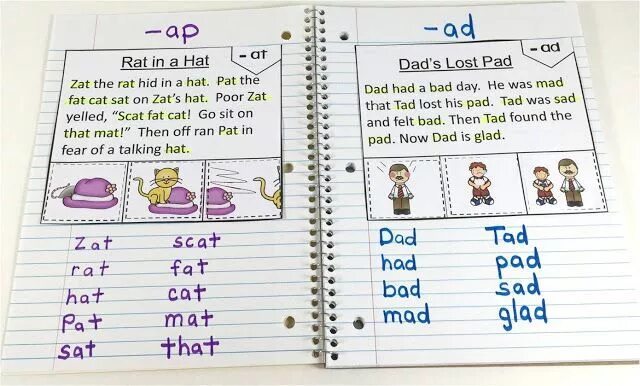 -ap
Rat in a Hat
- at
Zat the rat hid in a hat. Pat the
fat cat sat on Zat's hat. Poor Zat
yelled, "Scat fat cat! Go sit on
that mat!" Then off ran Pat in
fear of a talking hat.
Zat scat
rat fat
hat cat
Pat mat
sat that
-ad
- ad
Dad's Lost Pad
Dad had a bad day. He was mad
that Tad lost his pad. Tad was sad
and felt bad. Then Tad found the
pad. Now Dad is glad.
Dad Tad
had pad
bad sad
mad glad